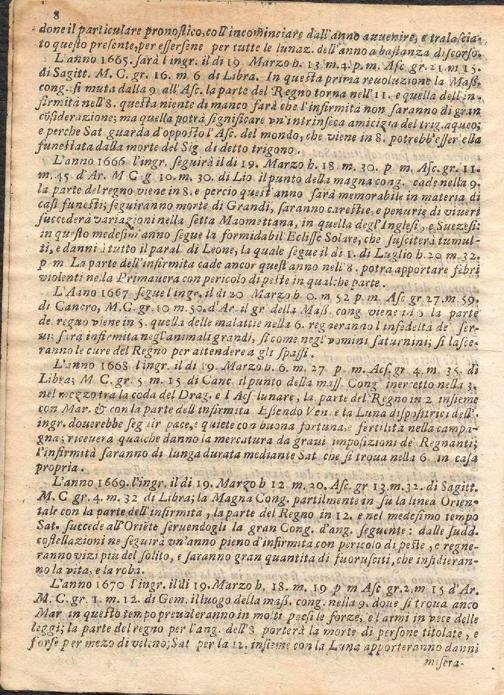 8
done il particulare pronostico, coll'incominciare dall'anno auuenire, e tralascia-
to questo presente, per essersene per tutte le lunaz. dell'anno a bastanza discorso.
L'anno 1665. sarà l'ingr. il di 19 Marzo h. 13 m. 4. p. m. Asc gr. 21. m 15.
di Sagitt. M. C. gr. 16. m 6 di Libra. In questa prima reuoluzione la Mass.
cong. si muta dalla 9 all'Asc. la parte del Regno torna nell'11. e quella dell'in-
firmità nell'8. questa niente di manco sarà che l'infirmità non saranno di gran
cōsiderazione; ma quella potrà significare vn'intrinseca amicizia del trig. aqueo;
e perche Sat guarda d'opposto l'Asc. del mondo, che viene in 8. potrebb'esser ella
funestata dalla morte del Sig di detto trigono.
L'anno 1666 l'ingr. seguirà il di 19. Marzo h. 18 m. 30. p m Asc gr. 11.
m. 45. d'Ar. M C g 10. m. 30. di Lio il punto della magna cong. cade nella 9.
la parte del regno viene in 8. e percio quest'anno sarà memorabile in materia di
casi funesti; seguiranno morte di Grandi, saranno carestie, e penurie di viueri
succederà variazioni nella setta Maomettana, in quella degl'Inglesi, e Suezesi:
in questo medesim' anno segue la formidabil Eclisse Solare, che susciterà tumul-
ti, e danni à tutto il paral di Leone, la quale segue il di 1. di Luglio h. 20 m. 32.
p m La parte dell'infirmità cade ancor quest'anno nell'8. potrà apportare febri
violenti nella Primauera con pericolo di peste in qualche parte.
L'Anno 1667 segue l'ingr. il di 20 Marzo h 0. m 52 p m. Asc gr. 27. m 59.
di Cancro, M. C. gr. 10 m. 50. d'Ar. il gr della Mass. cong. viene in 9 la parte
de regno viene in 5. quella delle malattie nella 6. regneranno l'infedeltà de' ser-
ui: sarà infirmità negl'animali grandi, si come negl'vomini saturnini; si lasce-
ranno le cure del Regno per attendere a gli spassi.
L'anno 1668 l'ingr. il di 19. Marzo h. 6. m. 27 p. m. Acs. gr 4. m. 35. di
Libra; M C. gr. 5 m. 15 di Canc. il punto della mass. Cong inercetto nella 3.
nel mezzo tra la coda del Drag. e l Asc lunare, la parte del Regno in 2 insieme
con Mar. & con la parte dell infirmità Essendo Ven e la Luna dispositrici dell'
ingr. douerebbe seguir pace, e quiete con buona fortuna, e fertilità nella campa-
gna; riceuera qualche danno la mercatura da graui imposizioni de Regnanti;
l'infirmità saranno di lunga durata mediante Sat che si troua nella 6. in casa
propria.
L'anno 1669. l'ingr. il di 19. Marzo h 12 m. 20. Asc. gr 13. m. 32. di Sagitt.
M. C gr. 4. m. 32 di Libra; la Magna Cong. partilmente in su la linea Orien-
tale con la parte dell'infirmità, la parte del Regno in 12. e nel medesimo tempo
Sat. succede all'Oriēte seruendogli la gran Cong. d'ang. seguente: dalle sudd.
costellazioni ne seguirà vn'anno pieno d'infirmità con pericolo di peste, e regne-
ranno vizi più del solito, e saranno gran quantità di fuorusciti, che insidieran-
no la vita, e la roba.
L'anno 1670 l'ingr. il di 19. Marzo h. 18. m. 19 p m Asc gr. 2. m 15 d'Ar.
M. C. gr. 1. m. 12. di Gem. il luogo della mass. cong. nella 9. doue si troua anco
Mar in questo tempo preualeranno in molti paesi le forze, e l'armi in vece delle
leggi; la parte del regno per l'ang. dell'8 porterà la morte di persone titolate, e
forse per mezo di veleno; Sat per la 12. insieme con la Luna apporteranno danni
misera-